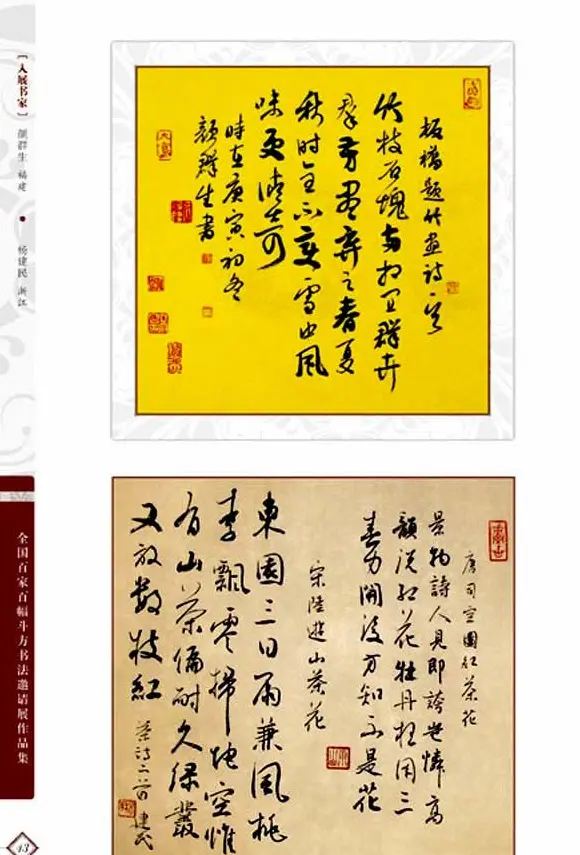 [入展书家]
颜群生 福建
杨建民 浙江
全国百家百幅斗方书法邀请展作品集
43
板橋题竹画诗一首
竹枝石塊两相宜群卉
群芳尽弃之春夏
秋时全不变雪中風
味更清奇
时在庚寅初冬
颜群生书
唐司空圖红茶花
景物詩人見即誇豈憐高
韻说红花牡丹枉用三
春力開後方知不是花
宋陸遊山茶花
東園三日雨兼風桃
李飄零掃地空惟
有山茶偏耐久緑叢
又放數枝紅
茶诗二首 建民